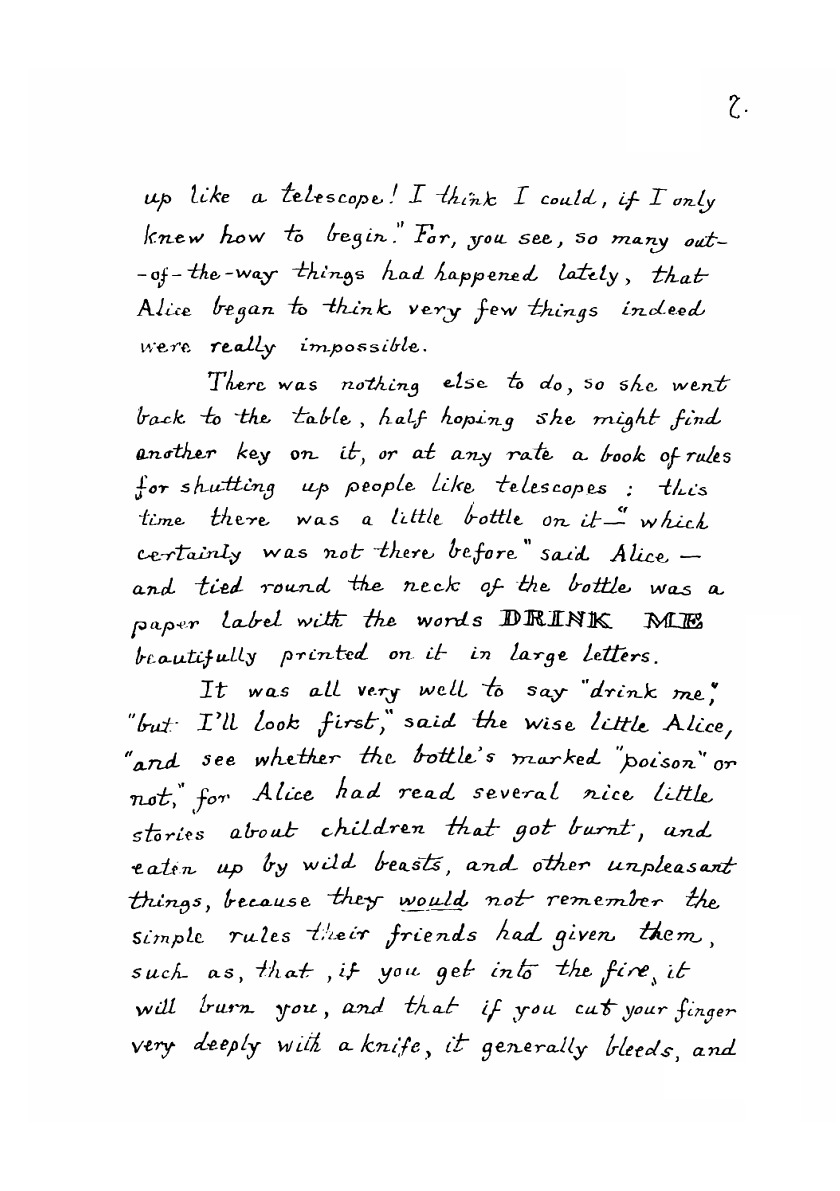 7.
up like a telescope! I think I could, if I only
knew how to begin." For, you see, so many out-
-of-the-way things had happened lately, that
Alice began to think very few things indeed
were really impossible.
There was nothing else to do, so she went
back to the table, half hoping she might find
another key on it, or at any rate a book of rules
for shutting up people like telescopes : this
time there was a little bottle on it—"which
certainly was not there before" said Alice —
and tied round the neck of the bottle was a
paper label with the words DRINK ME
beautifully printed on it in large letters.
It was all very well to say "drink me,"
"but I'll look first," said the wise little Alice,
"and see whether the bottle's marked "poison" or
not," for Alice had read several nice little
stories about children that got burnt, and
eaten up by wild beasts, and other unpleasant
things, because they would not remember the
simple rules their friends had given them,
such as, that, if you get into the fire, it
will burn you, and that if you cut your finger
very deeply with a knife, it generally bleeds, and